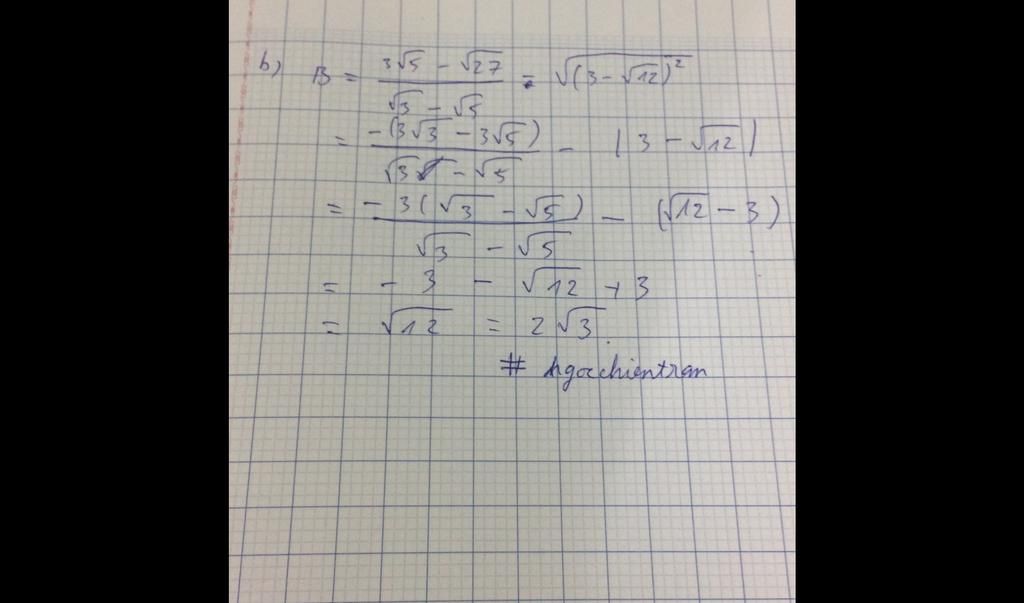 b) B = \frac{3\sqrt{5} - \sqrt{27}}{\sqrt{3} - \sqrt{5}} - \sqrt{(3 - \sqrt{12})^2}
= \frac{-(3\sqrt{3} - 3\sqrt{5})}{\sqrt{3} - \sqrt{5}} - |3 - \sqrt{12}|
= \frac{-3(\sqrt{3} - \sqrt{5})}{\sqrt{3} - \sqrt{5}} - (\sqrt{12} - 3)
= -3 - \sqrt{12} + 3
= \sqrt{12} = 2\sqrt{3}.
# ngocchientran